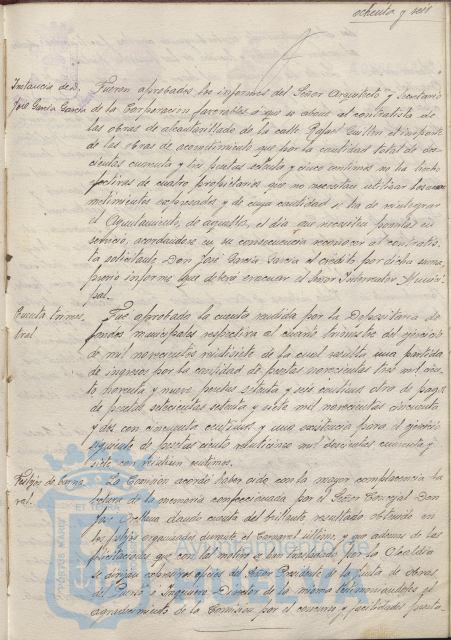 ochenta y seis
Instancia de D.
José García García
Fueron aprobados los informes del Señor Arquitecto y Secretario
de la Corporación favorables a que se abone al contratista de
las obras de alcantarillado de la calle Rafael Guillén el importe
de las obras de acometimiento que por la cantidad total de dos
cientas cuarenta y tres pesetas setenta y cinco centimos no ha hecho
efectivas de cuatro propietarios que no necesitan utilizar los aco
metimientos expresados y de cuya cantidad se ha de reintegrar
el Ayuntamiento, de aquellos, el dia que necesiten ponerlos en
servicio, acordandose en su consecuencia reconocer al contratis
ta solicitante Don José García García el crédito por dicha suma,
previo informe que deberá evacuar el Señor Interventor Munici
pal.
Cuenta trimes
tral
Fue aprobada la cuenta rendida por la Depositaria de
fondos municipales respectiva al cuarto trimestre del ejercicio
de mil novecientos veintisiete de la cual resulta una partida
de ingresos por la cantidad de pesetas novecientas tres mil cien
to noventa y nueve pesetas setenta y seis centimos otra de pagos
de pesetas setecientas setenta y siete mil novecientas cincuenta
y dos con cincuenta centimos y una existencia para el ejercicio
siguiente de pesetas ciento veinticinco mil doscientas cuarenta y
siete con veintiseis centimos.
Festejos de Carna
val.
La Comision acordó haber oido con la mayor complacencia la
lectura de la memoria confeccionada por el Señor Concejal Don
José Orellana dando cuenta del brillante resultado obtenido en
los festejos organizados durante el Carnaval ultimo, y que ademas de las
felicitaciones que con tal motivo se han trasladado por la Alcaldia
se dirijan sobre los oficios del Señor Presidente de la Junta de Obras
del Puerto e Ingeniero Director de la misma testimoniandoles el
agradecimiento de la Comision por el concurso y facilidades presta-